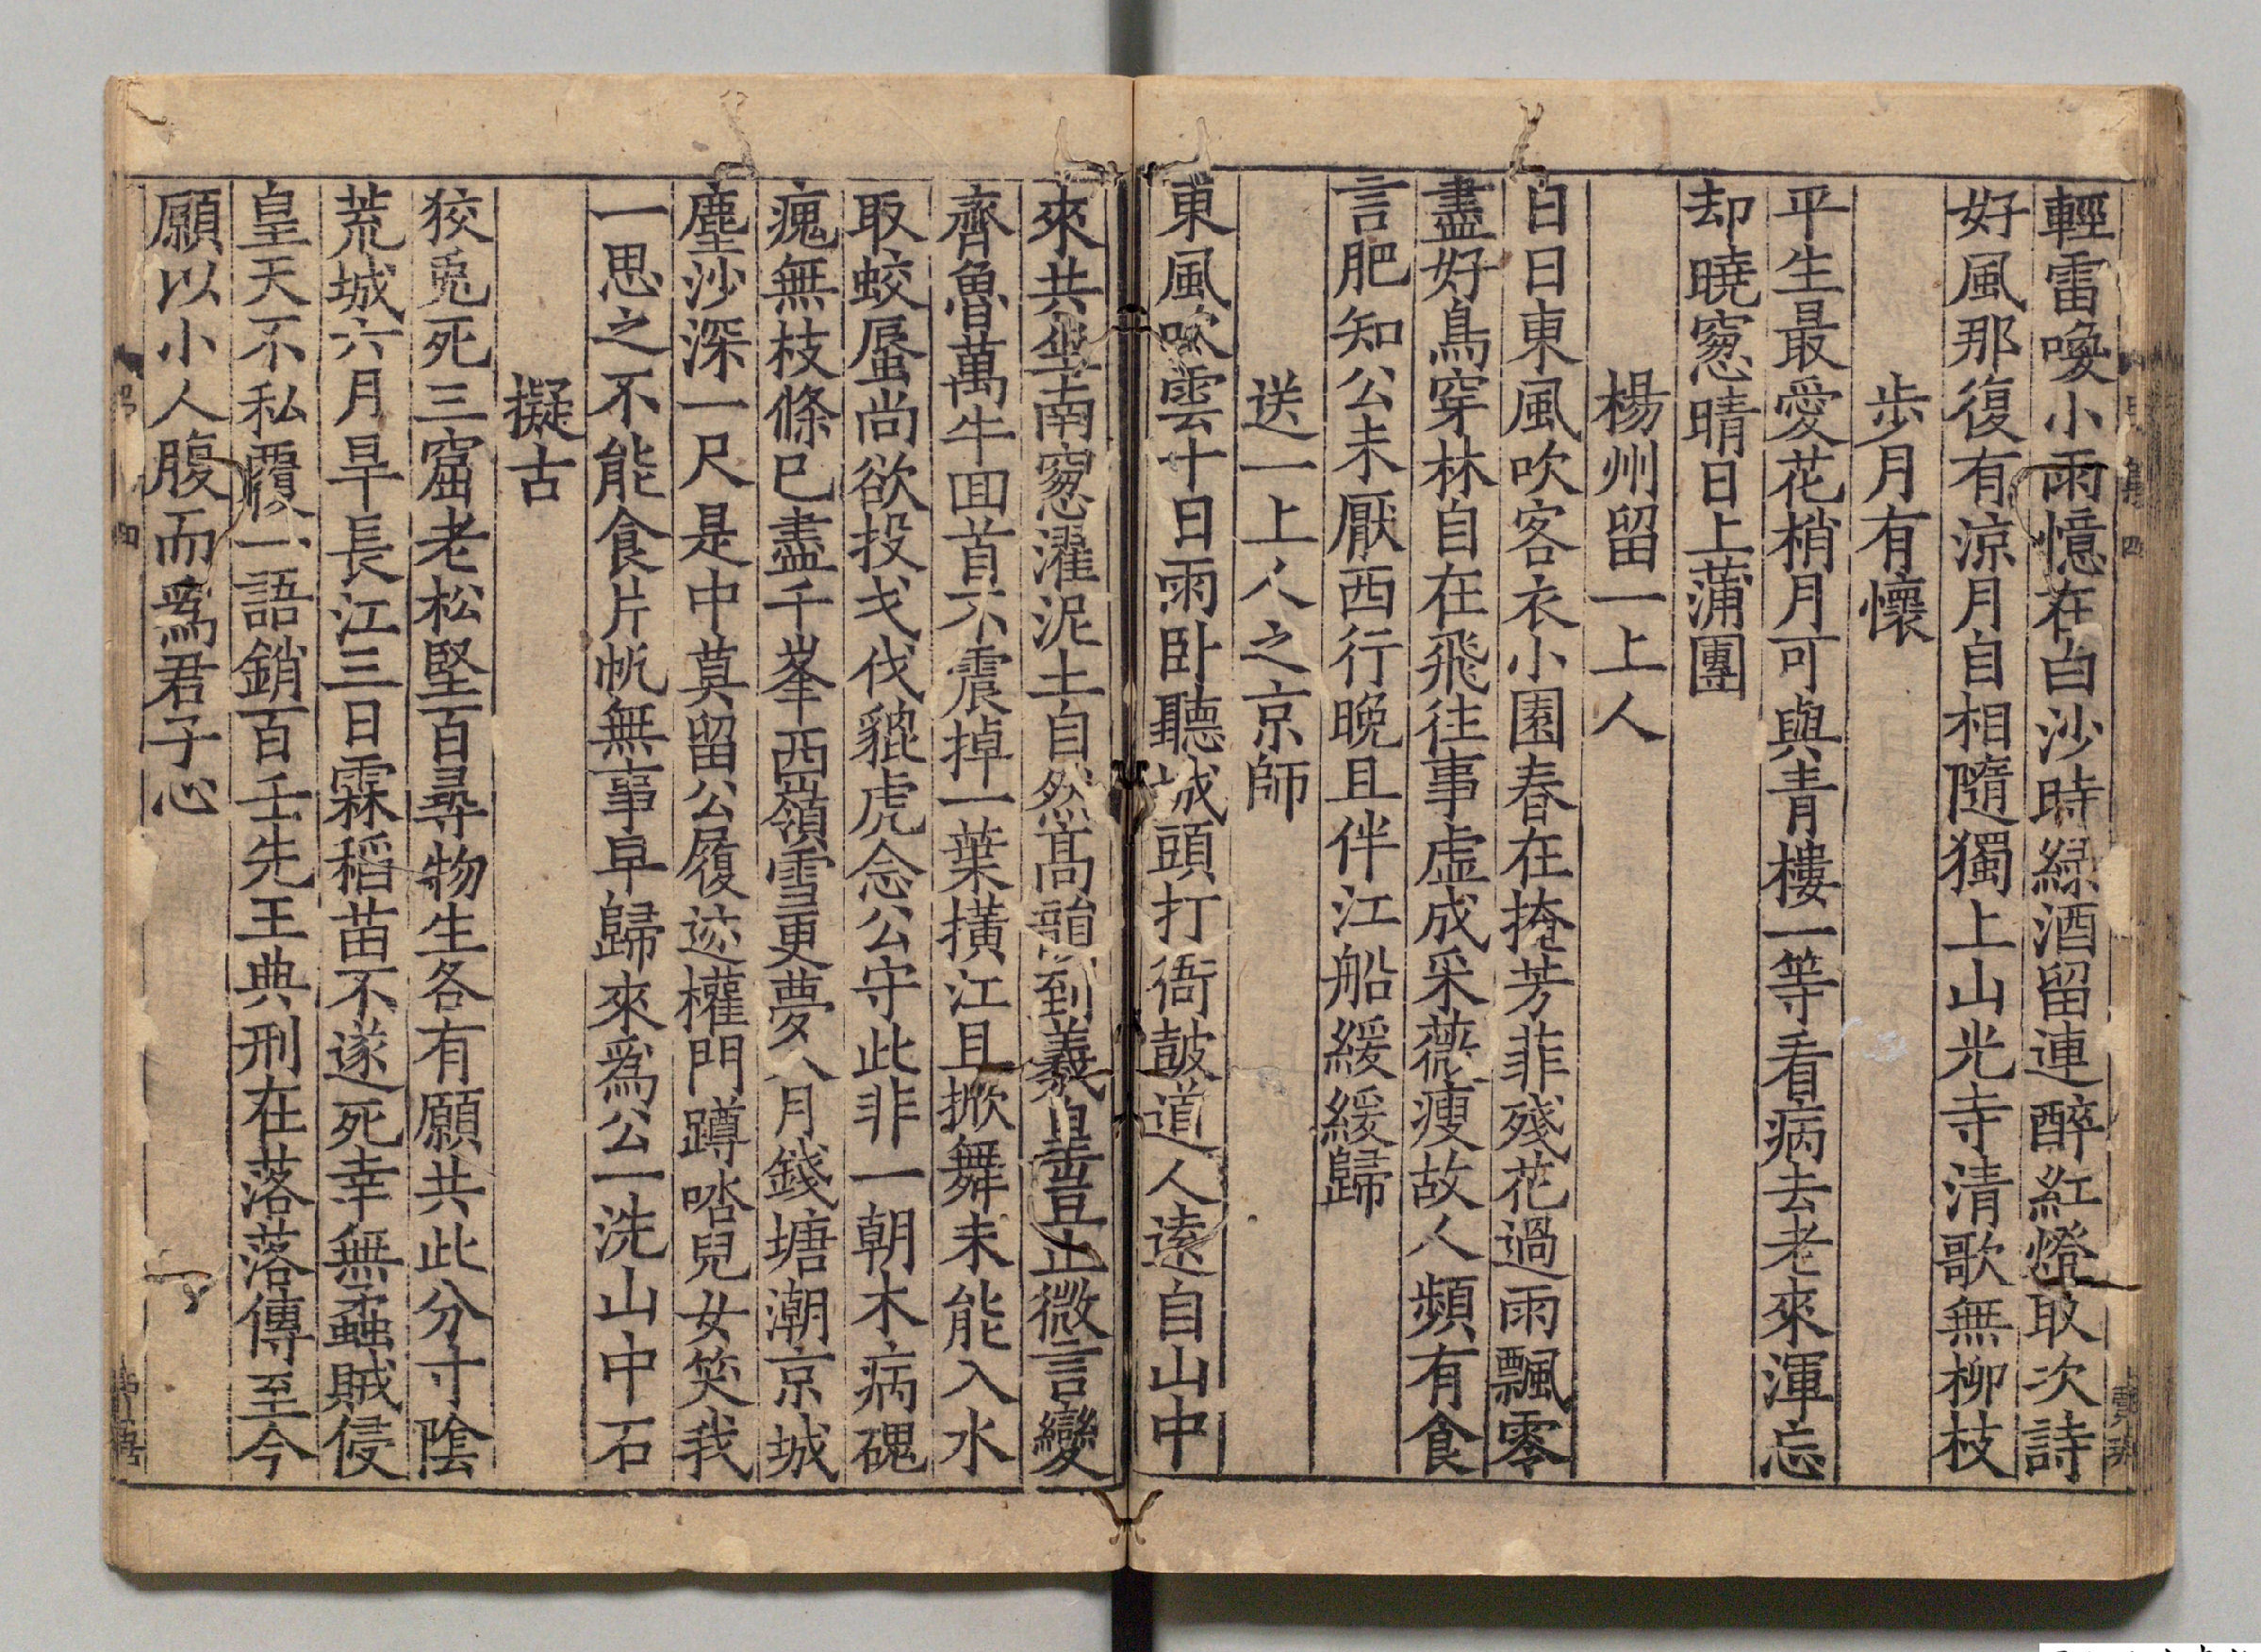 輕雷喚小雨憶在白沙時綠酒留連醉紅燈取次詩
好風那復有涼月自相隨獨上山光寺清歌無柳枝
步月有懷
平生最愛花梢月可與青樓一等看病去老來渾忘
却曉窓晴日上蒲團
楊州留一上人
日日東風吹客衣小園春在掩芳菲殘花過雨飄零
盡好鳥穿林自在飛往事虛成采薇瘦故人頻有食
言肥知公未厭西行晚且伴江船緩緩歸
送一上人之京師
東風吹雲十日雨卧聽城頭打衙鼓道人遠自山中
來共坐南窓濯泥土自然高韻到羲皇豈止微言變
齊魯萬牛回首不震掉一葉橫江且掀舞未能入水
取蛟蜃尚欲投戈伐貔虎念公守此非一朝木病磈
瘣無枝條已盡千峯西嶺雪更夢八月錢塘潮京城
塵沙深一尺是中莫留公履迹權門蹲喒兒女笑我
一思之不能食片帆無事早歸來爲公一洗山中石
擬古
狡兎死三窟老松堅百尋物生各有願共此分寸陰
荒城六月旱長江三日霖稻苗不遂死幸無蟊賊侵
皇天不私覆一語銷百壬先王典刑在落落傳至今
願以小人腹而爲君子心